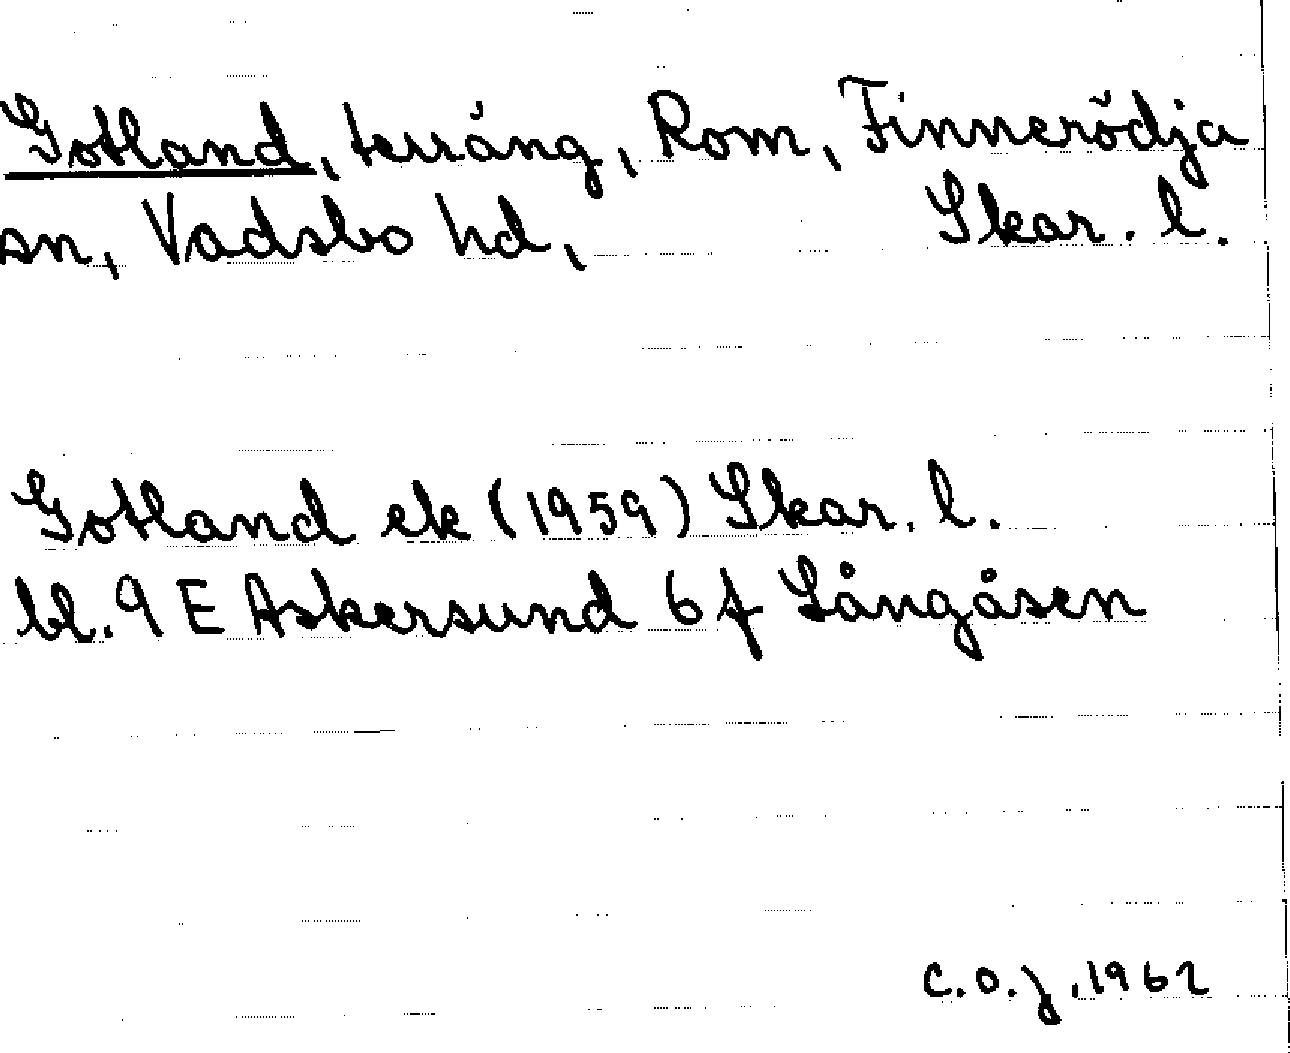 Gotland, terräng, Rom, Finnerödja
sn, Vadsbo hd, Skar. l.
Gotland ek (1959) Skar. l.
bl. 9 E Askersund 6 f Långåsen
C.O.J, 1962